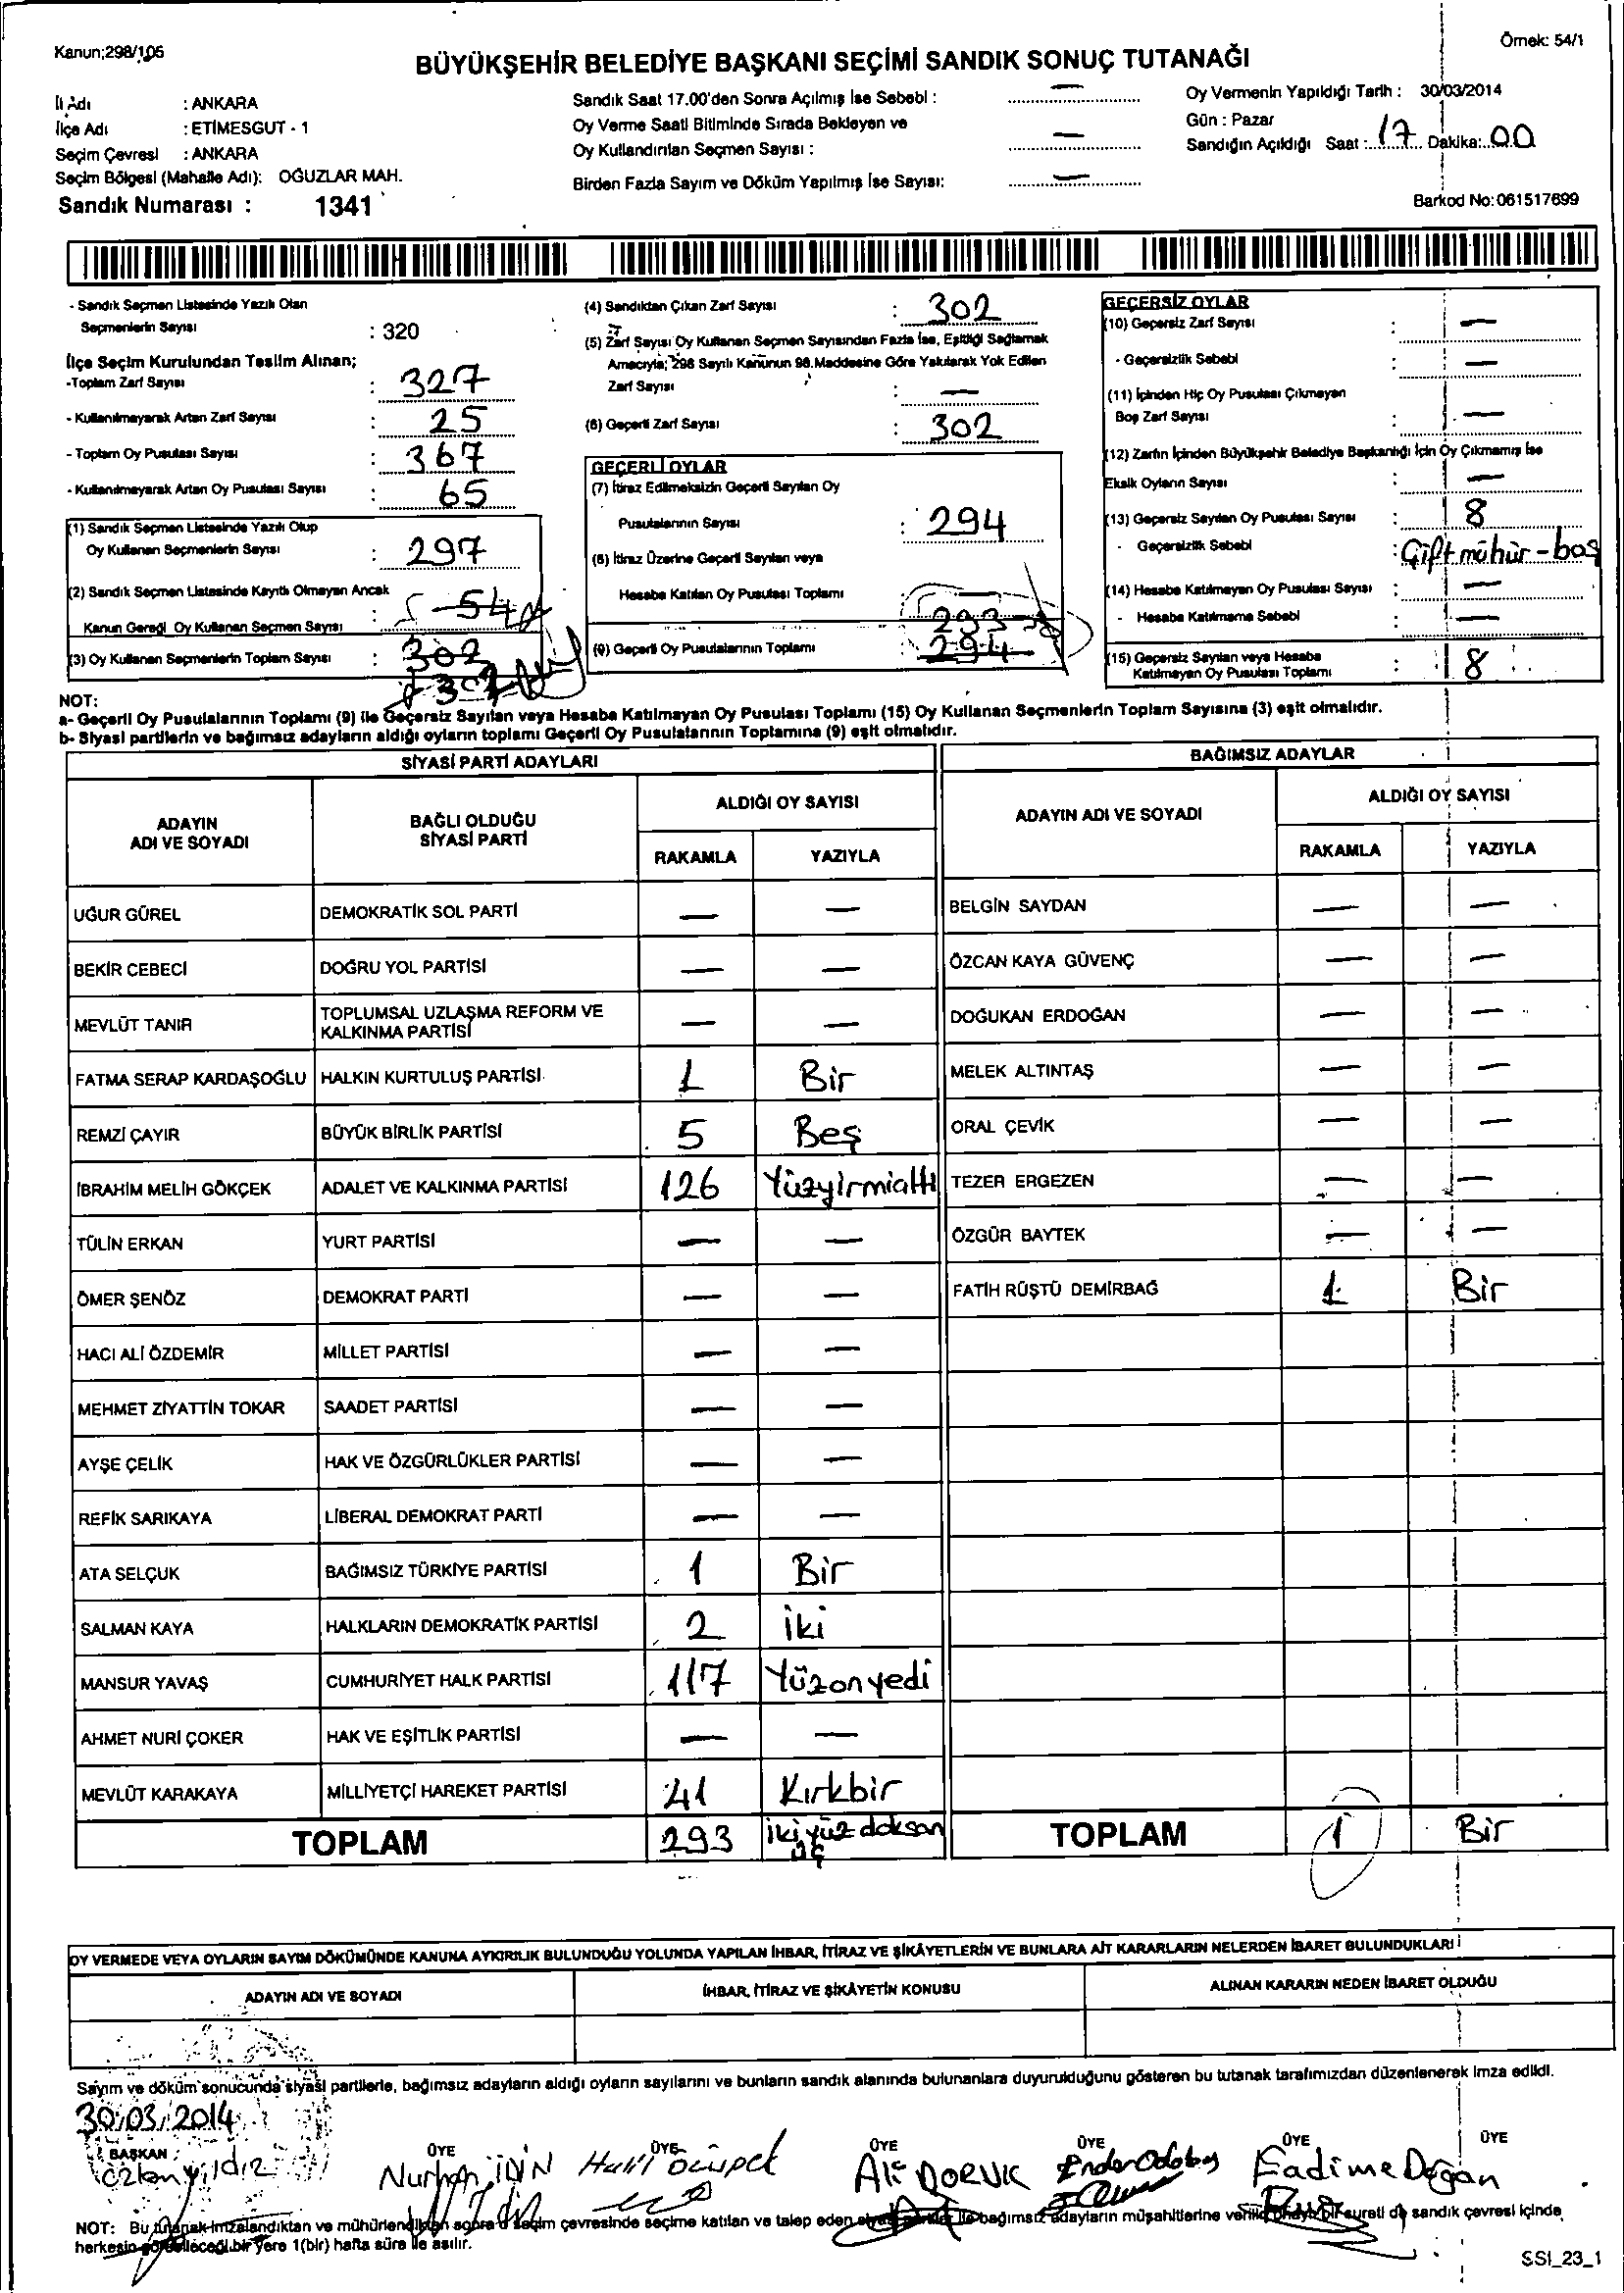 Kanun;298/105
Örnek: 54/1
BÜYÜKŞEHİR BELEDİYE BAŞKANI SEÇİMİ SANDIK SONUÇ TUTANAĞI
İl Adı : ANKARA
İlçe Adı : ETİMESGUT - 1
Seçim Çevresi : ANKARA
Seçim Bölgesi (Mahalle Adı): OĞUZLAR MAH.
Sandık Numarası : 1341
Sandık Saat 17.00'den Sonra Açılmış İse Sebebi : —
Oy Verme Saati Bitiminde Sırada Bekleyen ve
Oy Kullandırılan Seçmen Sayısı : —
Birden Fazla Sayım ve Döküm Yapılmış İse Sayısı: —
Oy Vermenin Yapıldığı Tarih : 30/03/2014
Gün : Pazar
Sandığın Açıldığı Saat : 17 Dakika: 00
Barkod No:061517699
- Sandık Seçmen Listesinde Yazılı Olan
Seçmenlerin Sayısı : 320
İlçe Seçim Kurulundan Teslim Alınan;
-Toplam Zarf Sayısı : 327
- Kullanılmayarak Artan Zarf Sayısı : 25
- Toplam Oy Pusulası Sayısı : 367
- Kullanılmayarak Artan Oy Pusulası Sayısı : 65
(1) Sandık Seçmen Listesinde Yazılı Olup
Oy Kullanan Seçmenlerin Sayısı : 297
(2) Sandık Seçmen Listesinde Kayıtlı Olmayan Ancak
Kanun Gereği Oy Kullanan Seçmen Sayısı : 5
(3) Oy Kullanan Seçmenlerin Toplam Sayısı : 302
302
(4) Sandıktan Çıkan Zarf Sayısı : 302
(5) Zarf Sayısı Oy Kullanan Seçmen Sayısından Fazla İse, Eşitliği Sağlamak
Amacıyla; 298 Sayılı Kanunun 98.Maddesine Göre Yakılarak Yok Edilen
Zarf Sayısı : —
(6) Geçerli Zarf Sayısı : 302
GEÇERLİ OYLAR
(7) İtiraz Edilmeksizin Geçerli Sayılan Oy
Pusulalarının Sayısı : 294
(8) İtiraz Üzerine Geçerli Sayılan veya
Hesaba Katılan Oy Pusulası Toplamı —
293
(9) Geçerli Oy Pusulalarının Toplamı 294
GEÇERSİZ OYLAR
(10) Geçersiz Zarf Sayısı : —
- Geçersizlik Sebebi : —
(11) İçinden Hiç Oy Pusulası Çıkmayan
Boş Zarf Sayısı : —
(12) Zarfın İçinden Büyükşehir Belediye Başkanlığı İçin Oy Çıkmamış İse
Eksik Oyların Sayısı : —
(13) Geçersiz Sayılan Oy Pusulası Sayısı : 8
- Geçersizlik Sebebi : Çift mühür - boş
(14) Hesaba Katılmayan Oy Pusulası Sayısı : —
- Hesaba Katılmama Sebebi : —
(15) Geçersiz Sayılan veya Hesaba
Katılmayan Oy Pusulası Toplamı : 8
NOT:
a- Geçerli Oy Pusulalarının Toplamı (9) ile Geçersiz Sayılan veya Hesaba Katılmayan Oy Pusulası Toplamı (15) Oy Kullanan Seçmenlerin Toplam Sayısına (3) eşit olmalıdır.
b- Siyasi partilerin ve bağımsız adayların aldığı oyların toplamı Geçerli Oy Pusulalarının Toplamına (9) eşit olmalıdır.
SİYASİ PARTİ ADAYLARI
BAĞIMSIZ ADAYLAR
ADAYIN
ADI VE SOYADI
BAĞLI OLDUĞU
SİYASİ PARTİ
ALDIĞI OY SAYISI
RAKAMLA YAZIYLA
ADAYIN ADI VE SOYADI
ALDIĞI OY SAYISI
RAKAMLA YAZIYLA
UĞUR GÜREL DEMOKRATİK SOL PARTİ — — BELGİN SAYDAN — —
BEKİR CEBECİ DOĞRU YOL PARTİSİ — — ÖZCAN KAYA GÜVENÇ — —
MEVLÜT TANIR TOPLUMSAL UZLAŞMA REFORM VE
KALKINMA PARTİSİ — — DOĞUKAN ERDOĞAN — —
FATMA SERAP KARDAŞOĞLU HALKIN KURTULUŞ PARTİSİ 1 Bir MELEK ALTINTAŞ — —
REMZİ ÇAYIR BÜYÜK BİRLİK PARTİSİ 5 Beş ORAL ÇEVİK — —
İBRAHİM MELİH GÖKÇEK ADALET VE KALKINMA PARTİSİ 126 Yüzyirmialtı TEZER ERGEZEN — —
TÜLİN ERKAN YURT PARTİSİ — — ÖZGÜR BAYTEK — —
ÖMER ŞENÖZ DEMOKRAT PARTİ — — FATİH RÜŞTÜ DEMİRBAĞ 1 Bir
HACI ALİ ÖZDEMİR MİLLET PARTİSİ — —
MEHMET ZİYATTİN TOKAR SAADET PARTİSİ — —
AYŞE ÇELİK HAK VE ÖZGÜRLÜKLER PARTİSİ — —
REFİK SARIKAYA LİBERAL DEMOKRAT PARTİ — —
ATA SELÇUK BAĞIMSIZ TÜRKİYE PARTİSİ 1 Bir
SALMAN KAYA HALKLARIN DEMOKRATİK PARTİSİ 2 iki
MANSUR YAVAŞ CUMHURİYET HALK PARTİSİ 117 Yüzonyedi
AHMET NURİ ÇOKER HAK VE EŞİTLİK PARTİSİ — —
MEVLÜT KARAKAYA MİLLİYETÇİ HAREKET PARTİSİ 41 Kırkbir
TOPLAM 293 ikiyüz doksan
üç
TOPLAM 1 Bir
OY VERMEDE VEYA OYLARIN SAYIM DÖKÜMÜNDE KANUNA AYKIRILIK BULUNDUĞU YOLUNDA YAPILAN İHBAR, İTİRAZ VE ŞİKÂYETLERİN VE BUNLARA AİT KARARLARIN NELERDEN İBARET BULUNDUKLARI
ADAYIN ADI VE SOYADI
İHBAR, İTİRAZ VE ŞİKÂYETİN KONUSU
ALINAN KARARIN NEDEN İBARET OLDUĞU
Sayım ve döküm sonucunda siyasi partilerle, bağımsız adayların aldığı oyların sayılarını ve bunların sandık alanında bulunanlara duyurulduğunu gösteren bu tutanak tarafımızdan düzenlenerek imza edildi.
30/03/2014
BAŞKAN ÜYE ÜYE ÜYE ÜYE ÜYE ÜYE
Özlem Yıldız Nurhan Ali DORUK Fadime Doğan
NOT: Bu tutanak imzalandıktan ve mühürlendikten sonra o seçim çevresinde seçime katılan ve talep eden siyasi partiler ile bağımsız adayların müşahitlerine verilip onaylı bir sureti de sandık çevresi içinde
herkesin görebileceği bir yere 1(bir) hafta süre ile asılır.
SSI_23_1